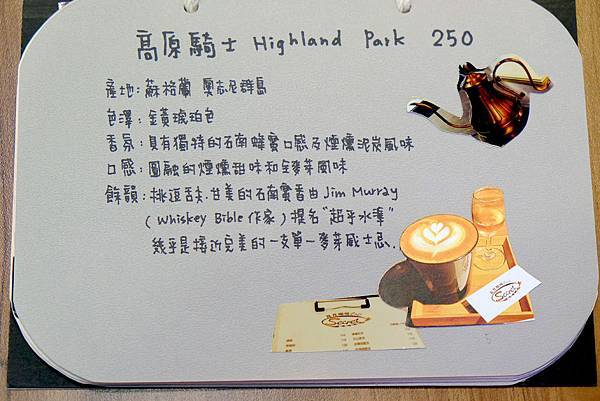 高原騎士 Highland Park 250
產地:蘇格蘭 奧志尼群島
色澤:金黃琥珀色
香氛:具有獨特的石南蜂蜜口感及煙燻泥炭風味
口感:圓融的煙燻甜味和全麥芽風味
餘韻:挑逗舌末.甘美的石南蜜香由Jim Murray
(Whiskey Bible作家)提名"超乎水準"
幾乎是接近完美的一支單一麥芽威士忌.
Secret
Secret